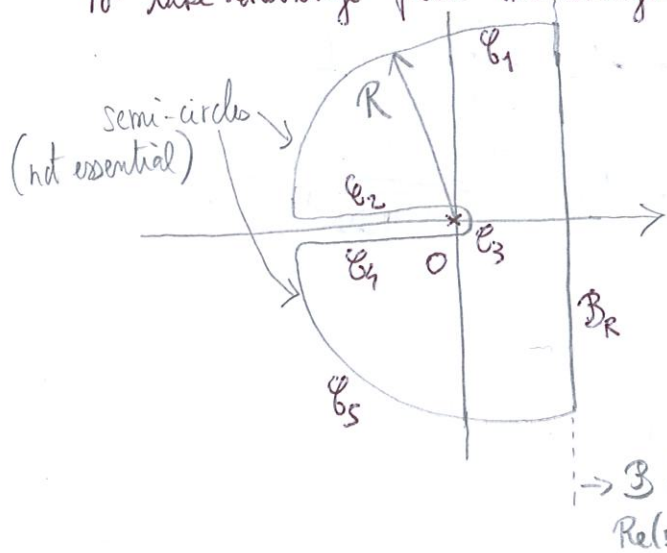 to take
𝒞₁
R
semi-circles
(not essential)
𝒞₂
𝒞₃
𝒞₄
O
B_R
𝒞₅
→ B
Re(